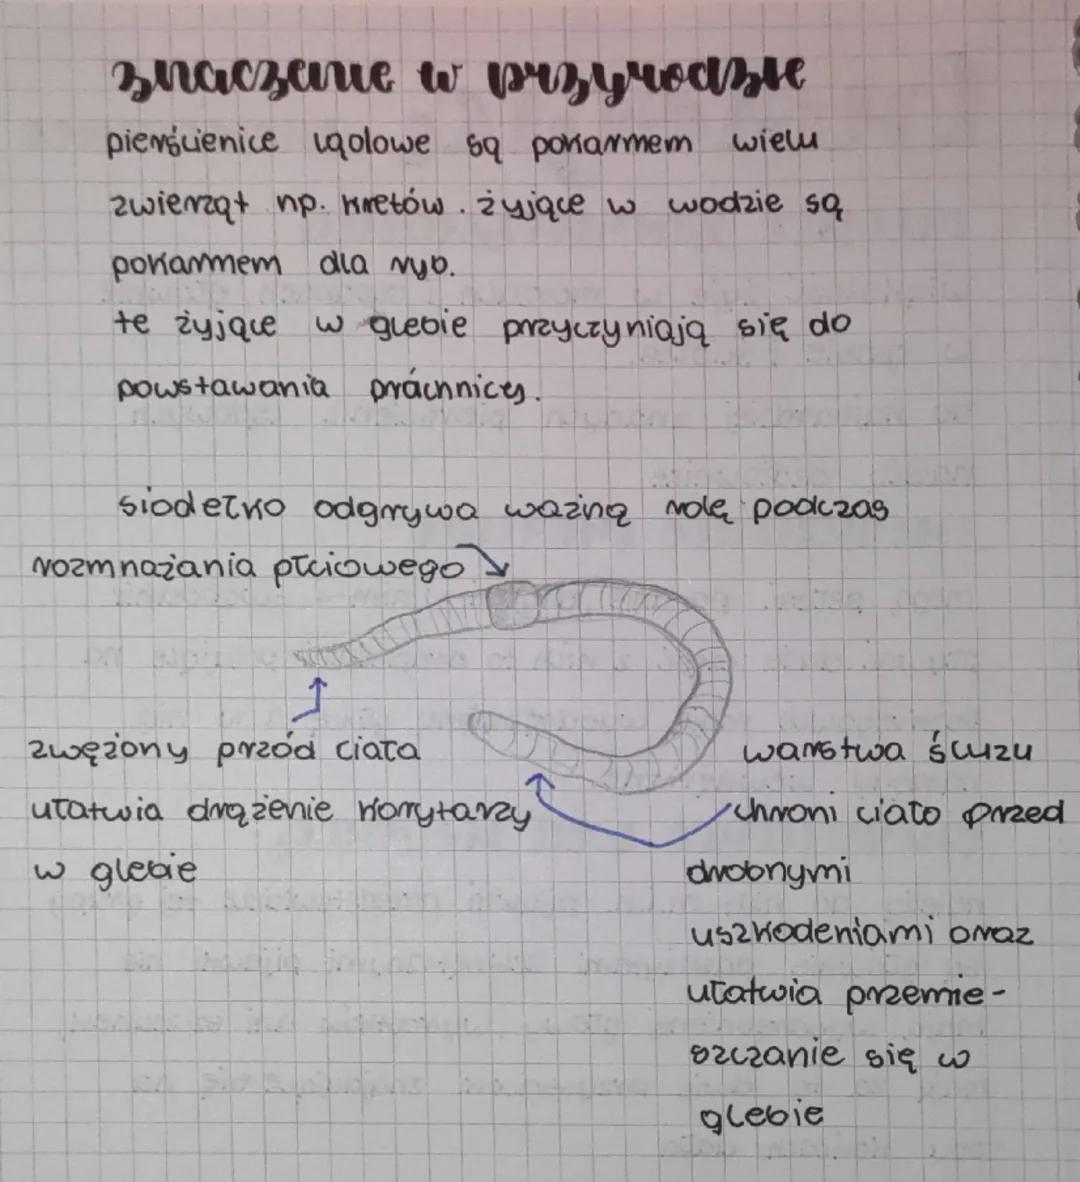 znaczenie w przyrodzie
pierścienice lądowe są pokarmem wielu
zwierząt np. kretów. żyjące w wodzie są
pokarmem dla ryb.
te żyjące w glebie przyczyniają się do
powstawania próchnicy.
siodełko odgrywa ważną rolę podczas
rozmnażania płciowego
zwężony przód ciała
ułatwia drążenie korytarzy
w glebie
warstwa śluzu
chroni ciało przed
drobnymi
uszkodeniami oraz
ułatwia przemie-
szczanie się w
glebie